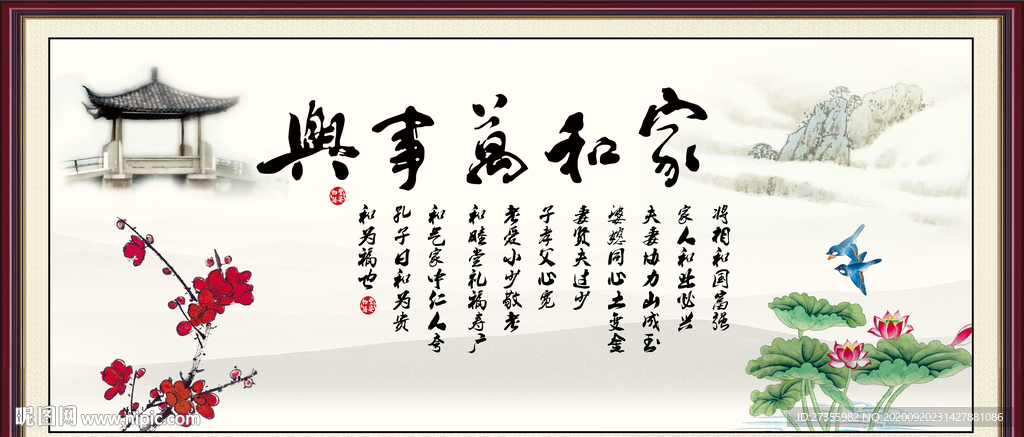 家和萬事興
将相和国富强
家人和业必兴
夫妻协力山成玉
婆媳同心土变金
妻贤夫过少
子孝父心宽
老爱小少敬老
和睦堂礼福寿广
和气家中仁人夸
孔子曰和为贵
和为福也
昵图网 www.nipic.com
ID:27355982 NO:20200920231427881086